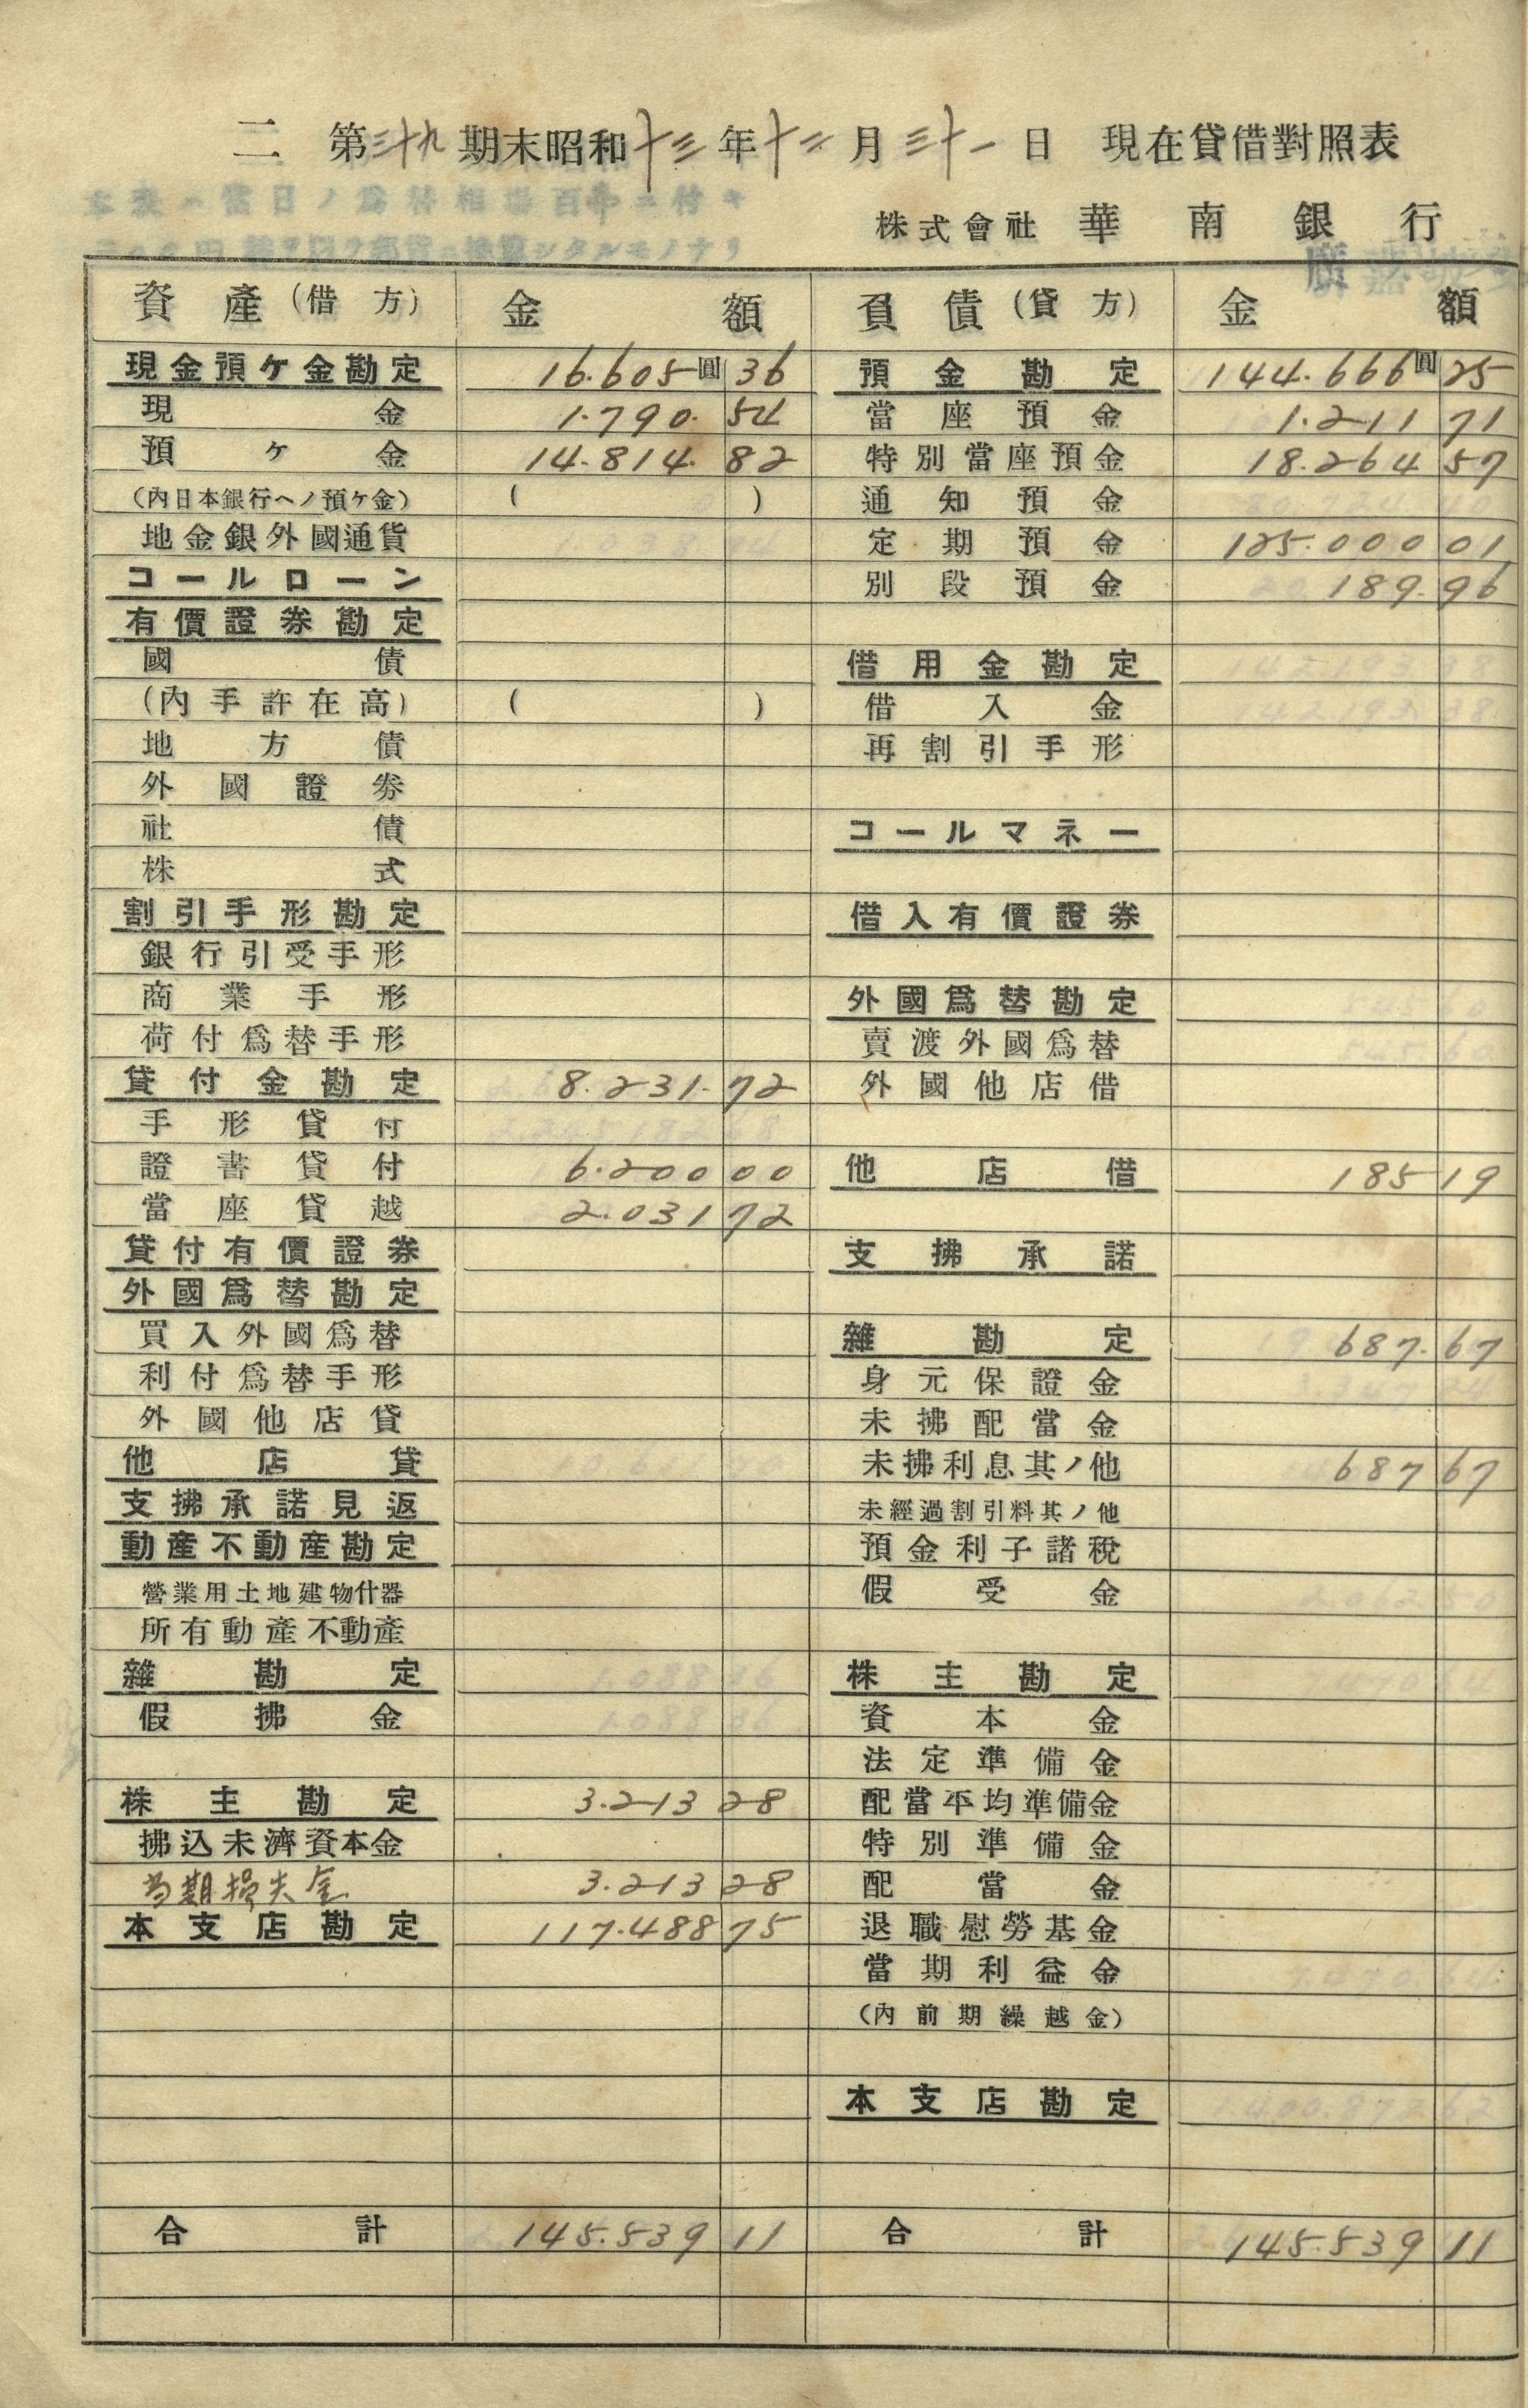 二 第三十九期末昭和十三年十二月三十一日 現在貸借對照表
株式會社 華南銀行
資產(借方) 金額 負債(貸方) 金額
現金預ケ金勘定 16.605圓36 預金勘定 144.666圓25
現金 1.790.54 當座預金 1.211 71
預ケ金 14.814.82 特別當座預金 18.264 57
(內日本銀行ヘノ預ケ金) ( ) 通知預金
地金銀外國通貨 定期預金 125.000 01
コールローン 別段預金 189.96
有價證券勘定
國債 借用金勘定
(內手許在高) ( ) 借入金
地方債 再割引手形
外國證券
社債 コールマネー
株式
割引手形勘定 借入有價證券
銀行引受手形
商業手形 外國爲替勘定
荷付爲替手形 賣渡外國爲替
貸付金勘定 8.231.72 外國他店借
手形貸付
證書貸付 6.200 00 他店借 185 19
當座貸越 2.031 72
貸付有價證券 支拂承諾
外國爲替勘定
買入外國爲替 雜勘定 687.67
利付爲替手形 身元保證金
外國他店貸 未拂配當金
他店貸 未拂利息其ノ他 687 67
支拂承諾見返 未經過割引料其ノ他
動產不動產勘定 預金利子諸稅
營業用土地建物什器 假受金
所有動產不動產
雜勘定 株主勘定
假拂金 資本金
法定準備金
株主勘定 3.213 28 配當平均準備金
拂込未濟資本金 特別準備金
当期損失金 3.213 28 配當金
本支店勘定 117.488 75 退職慰勞基金
當期利益金
(內前期繰越金)
本支店勘定
合計 145.539 11 合計 145.539 11